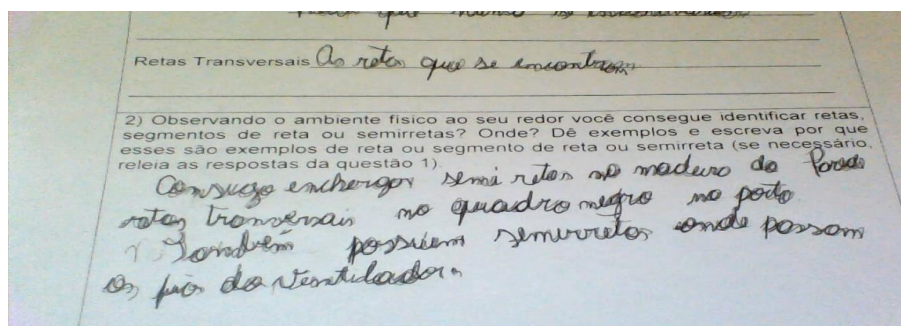 que nunca se
Retas Transversais As retas que se encontram
2) Observando o ambiente físico ao seu redor você consegue identificar retas,
segmentos de reta ou semirretas? Onde? Dê exemplos e escreva por que
esses são exemplos de reta ou segmento de reta ou semirreta (se necessário,
releia as respostas da questão 1).
Consigo enchergar semi retas no madeiro da
retas transversais no quadro negro na porta
Também possuem semirretas onde passam
os fios do ventilador.